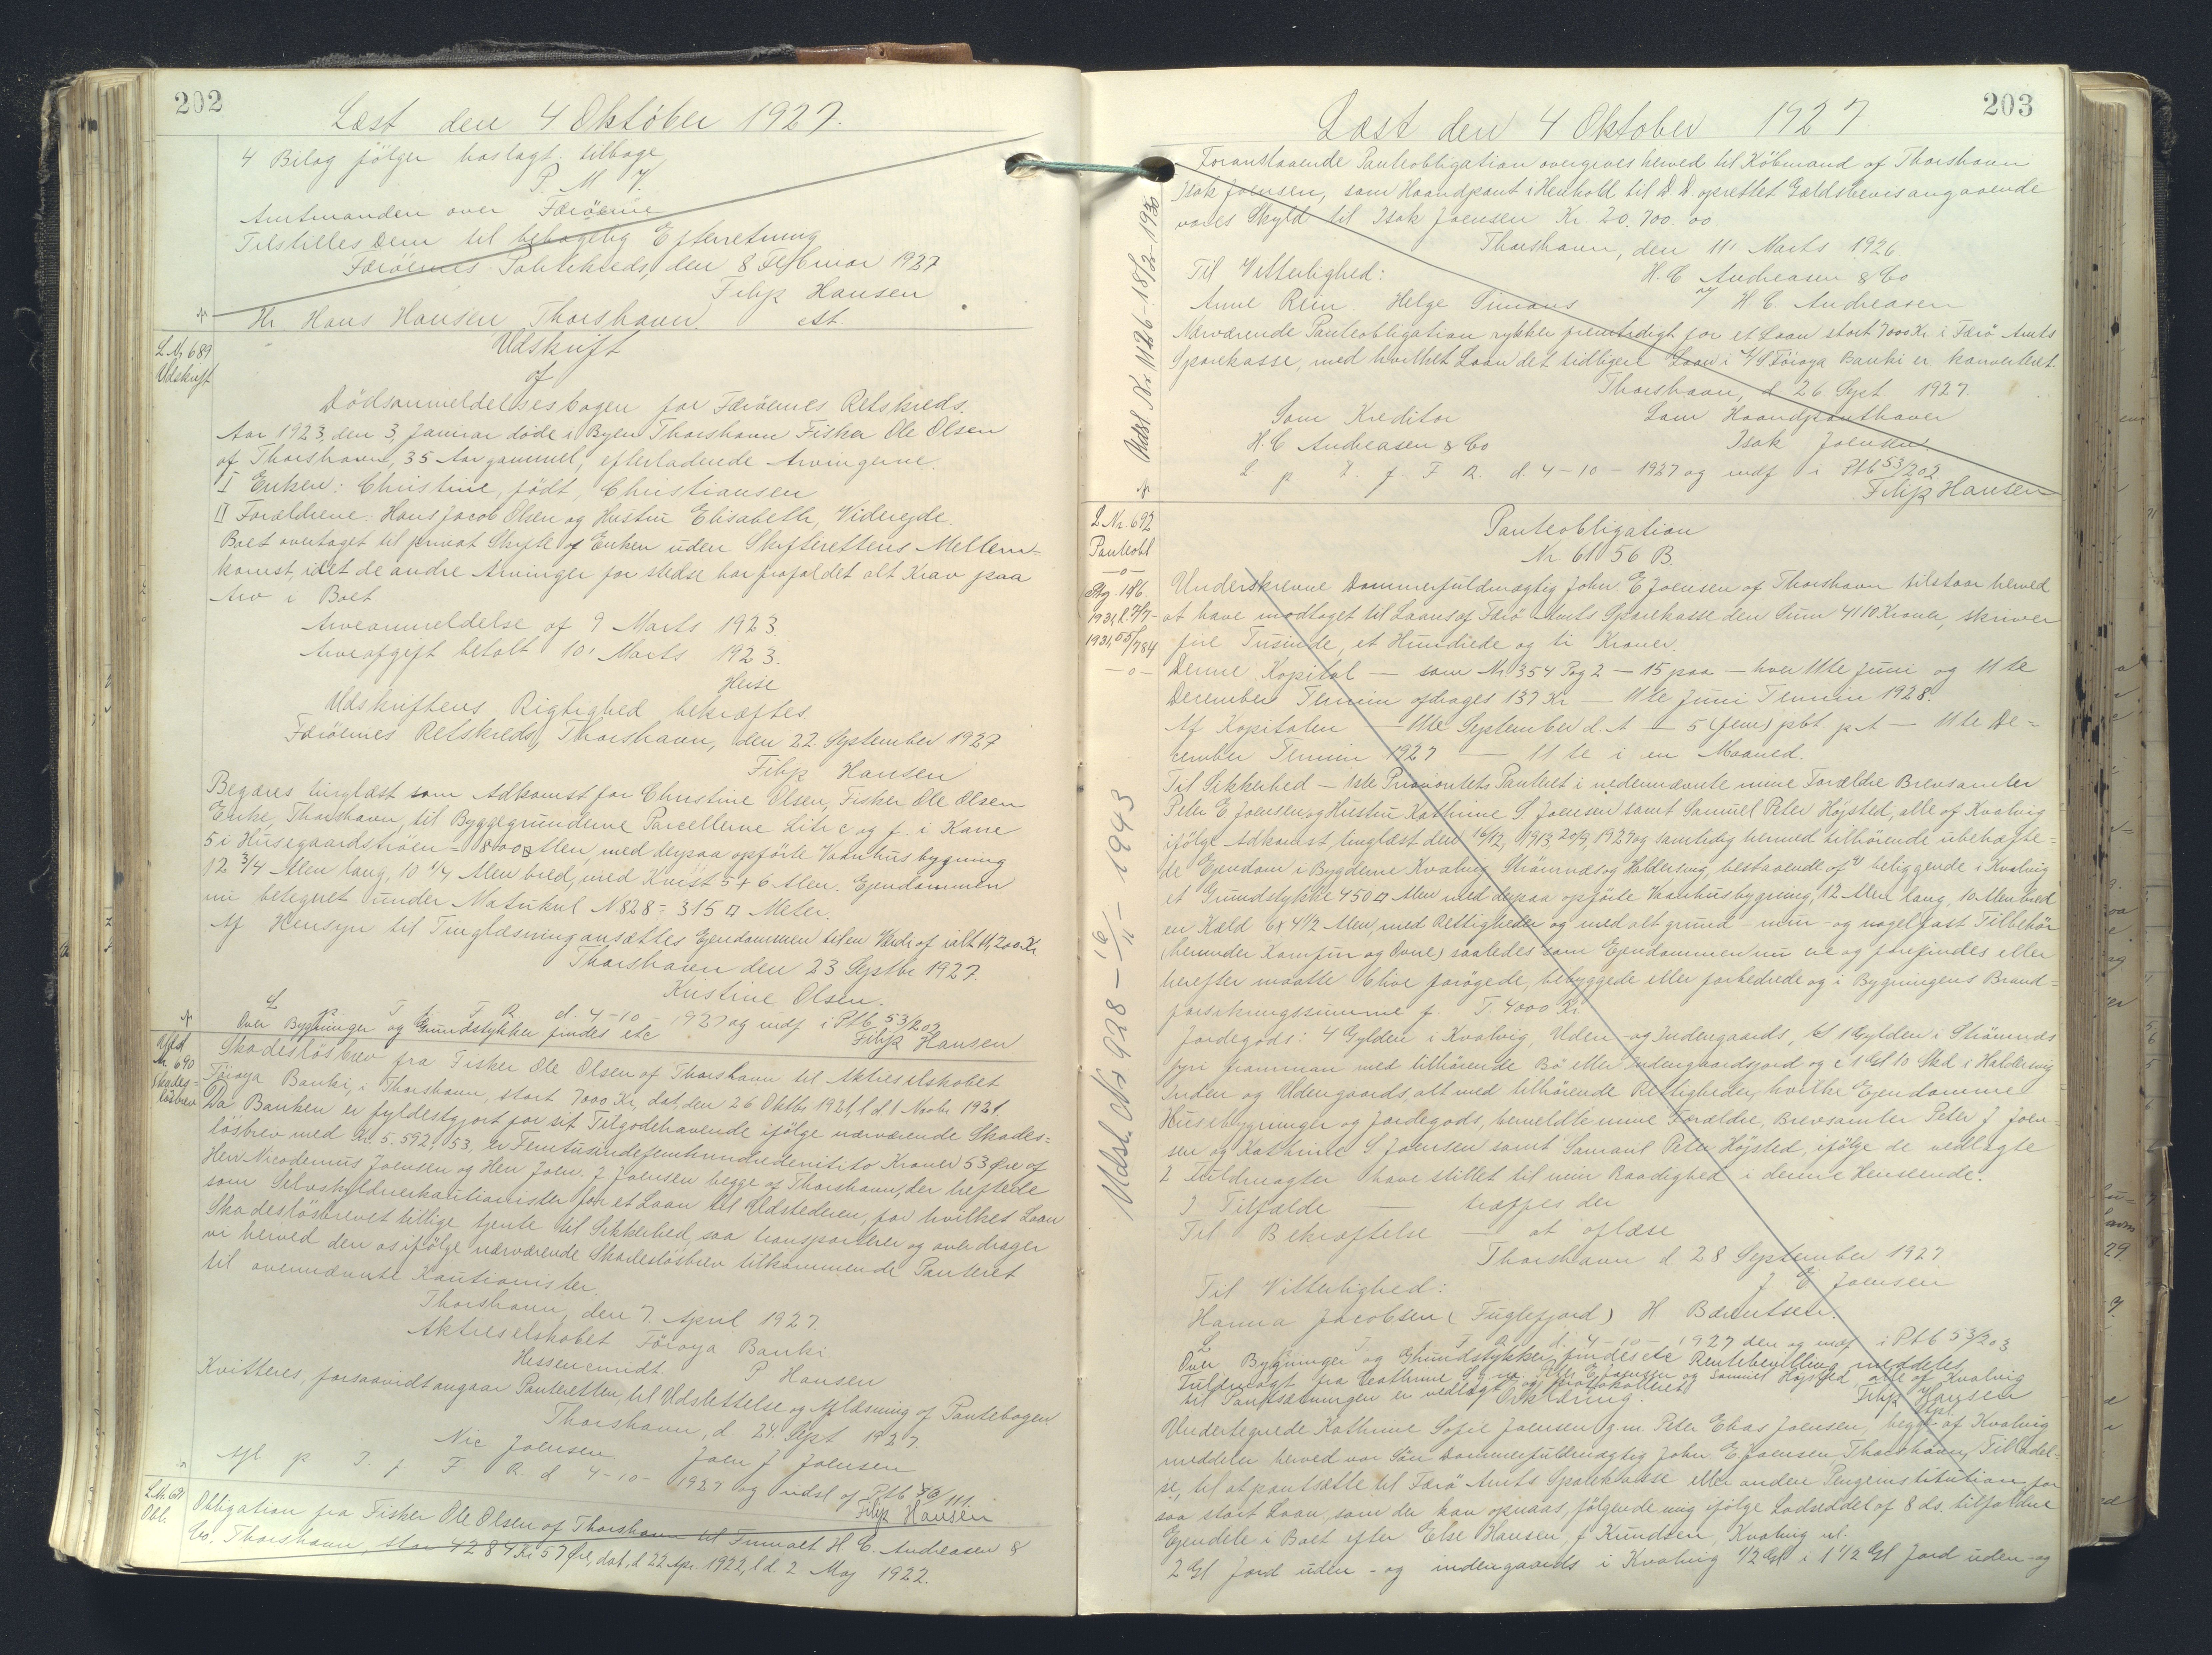 202
Læst den 4 Oktober 1927.
4 Bilag følger vedlagt tilbage
P. M. V.
Amtmanden over Færöerne
Tilstilles Dem til behagelig Efterretning
Færöernes Politikreds, den 8 Februar 1927
Filip Hansen
Hr Hans Hansen Thorshavn. est.
L. Nr 689
Udskrift
Udskrift
af
Dödsanmeldelsesbogen for Færöernes Retskreds.
Aar 1923, den 3, Januar døde i Byen Thorshavn Fisker Ole Olsen
af Thorshavn, 35 Aar gammel, efterladende Arvingerne.
I Enken: Christine, født, Christiansen
II Forældrene: Hans Jacob Olsen og Hustru Elisabeth, Viderejde.
Boet overtaget til privat Skifte af Enken uden Skifterettens Mellem-
komst, idet de andre Arvinger for stedse har frafaldet alt Krav paa
Arv i Boet
Arveanmeldelse af 9 Marts 1923.
Arveafgift betalt 10' Marts 1923.
Heise
Udskriftens Rigtighed bekræftes
Færöernes Retskreds, Thorshavn, den 22. September 1927
Filip Hansen
Begæres tinglæst som Adkomst for Christine Olsen, Fisker Ole Olsen
Enke, Thorshavn, til Byggegrundene Parcellerne Litr c og f. i Karre
5 i Husegaardströen = 800 □ Alen, med derpaa opförte Vaanhusbygning
12 3/4 Alen lang, 10 1/4 Alen bred, med Kvist 5 + 6 Alen. Ejendommen
nu betegnet under Matrikul N. 828 = 315 □ Meter.
Af Hensyn til Tinglæsning ansættes Ejendommen til en Værdi af ialt 11,200 Kr
Thorshavn den 23 Septbr 1927.
Kristine Olsen.
L p T f F R d. 4-10-1927 og indf i Ptb 53/202
Over Bygninger og Grundstykker findes etc Filip Hansen
Afld
Nr 690
Skades-
løsbrev
Skadeslösbrev fra Fisker Ole Olsen af Thorshavn til Aktieselskabet
Föroya Banki, i Thorshavn, stort 7000 Kr, dat, den 26 Oktbr 1921, l d 1 Novbr 1921.
Da Banken er fyldestgjort for sit Tilgodehavende ifölge nærværende Skades=
løsbrev med Kr. 5.592,53, er Femtusindefemhundredenitito Kroner 53 Øre af
Herr Nicodemus Joensen og Herr Joen. J Joensen begge af Thorshavn, der heftede
som Selvskyldnerkautionister for et Laan til Udstederen, for hvilket Laan
Skadeslösbrevet tillige tjente til Sikkerhed, saa transporterer og overdrager
vi herved den os ifölge nærværende Skadeslösbrev tilkommende Panteret
til ovennævnte Kautionister.
Thorshavn, den 7 April 1927.
Aktieselskabet Föroya Banki
P Hansen
Kvitteres, forsaavidt angaar Panteretten, til Udslettelse og Aflæsning af Pantebogen
Thorshavn, d. 24 Sept 1927.
Nic Joensen Joen J Joensen
Afl p T. f. F. R. d 4-10-1927 og udsl af Ptb 43/111.
Filip Hansen
L. Nr. 691
Obl.
Obligation fra Fisker Ole Olsen af Thorshavn til Firmaet H. C. Andreasen &
Co. Thorshavn, stor 4284 Kr 57 Øre, dat, d 22 Apr. 1922, l d 2 Maj 1922.
203
Læst den 4 Oktober 1927
Foranstaaende Panteobligation overgives herved til Købmand af Thorshavn
Isak Joensen, som Haandpant i Henhold til D. D oprettet Gældsbevis angaaende
vores Skyld til Isak Joensen Kr. 20.700.00
Thorshavn, den 11' Marts 1926.
Til Vitterlighed: H. C Andreasen & Co
Anne Rein. Helge H. C. Andreasen
Nærværende Panteobligation rykker fremtidigt for et Laan stort 7000 Kr i Færö Amts
Sparekasse, med hvilket Laan det tidligere Laan i A/S Föroya Banki er konverteret.
Thorshavn, d 26 Sept 1927.
Som Kreditor Som Haandpanthaver
H. C Andreasen & Co Isak Joensen.
L p T. f F R. d. 4-10-1927 og indf i Ptb 53/202
Filip Hansen
Udsl. Nr 1126 - 18/2 - 1930
L. Nr. 692
Panteobl
Panteobligation
Nr 61056 B.
Underskrevne Dommerfuldmægtig John E Joensen af Thorshavn tilstaar herved
at have modtaget til Laans af Færö Amts Sparekasse den Sum 4110 Kroner, skriver
fire Tusinde, et Hundrede og ti Kroner.
Denne Kapital — som Nr 354 Pag 2 — 15 paa — hver 11te Juni og 11te
December Termin afdrages 137 Kr — 11te Juni Termin 1928.
Af Kapitalen — 11te September d. A — 5 (fem) pCt p. A — 11te De=
cember Termin 1927 — 11te i en Maaned.
Til Sikkerhed — 1ste Prioritets Panteret i nedennævnte mine Forældre Brevsamler
Peter E Joensen og Hustru Kathrine S. Joensen samt Samuel Peter Højsted, alle af Kvalvig
ifölge Adkomst tinglæst den 16/12, 1913, 20/9, 1927 og samtidig hermed tilhörende ubehæfte=
de Ejendom i Bygderne Kvalvig Strömnæs og Haldersvig, bestaaende af 1) beliggende i Kvalvig
et Grundstykke 450 □ Alen med derpaa opförte Vaanhusbygning, 12 Alen lang, 10 Alen bred
en Kæld 6 x 4 1/2 Alen, med Rettigheder og med alt grund- mur- og nagelfast Tilbehör
(herunder Komfur og Ovne) saaledes som Ejendommen nu er og forefindes eller
herefter maatte blive forøgede, bebyggede eller forbedrede og i Bygningens Brand=
forsikringssumme f. T. 4000 Kr.
Jordegods: 4 Gylden i Kvalvig, Uden- og Indengaards, 1 Gylden i Strömnæs
fyri framman med tilhörende Bö eller Indengaardsjord og i 1 Gl 10 Skd i Haldersvig
Inden og Udengaards, alt med tilhörende Rettigheder, hvilke Ejendomme
Husebygninger og Jordegods, bemeldte mine Forældre, Brevsamler Peter J Joen-
sen og Kathrine S Joensen samt Samuel Peter Højsted, ifölge de vedlagte
2 Fuldmagter have stillet til min Raadighed i denne Henseende.
I Tilfælde — træffes der
Til Bekræftelse — at aflæse
Thorshavn d 28 September 1927
Til Vitterlighed: J E Joensen
Hanna Jacobsen (Fuglefjord) H Bærentsen.
L T. R. d. 4-10-1927 den og indf i Ptb 53/203
Over Bygninger og Grundstykker findes etc Rentebevilling meddeles.
Fuldmagt fra Cathrine S g.m. Peter E Joensen og Samuel Højsted, alle af Kvalvig
til Pantsætningen er vedlagt og protokolleret Filip Hansen
Erklæring.
Undertegnede Kathrine Sofie Joensen g.m. Peter Elias Joensen, begge af Kvalvig
meddeler herved vor Sön Dommerfuldmægtig John E. Joensen, Thorshavn, Tilladel-
se, til at pantsætte til Færö Amts Sparekasse eller anden Pengeinstitution for
saa stort Laan, som der kan opnaas, følgende mig ifölge Lodseddel af 8 ds. tilfaldne
Ejendele i Boet efter Else Hansen, f Knudsen, Kvalvig nl.
2 Gl Jord uden- og indengaards i Kvalvig 1/2 Gl i 1 1/2 Gl Jord uden- og
Udsl. Nr 928 - 16/11 - 1943